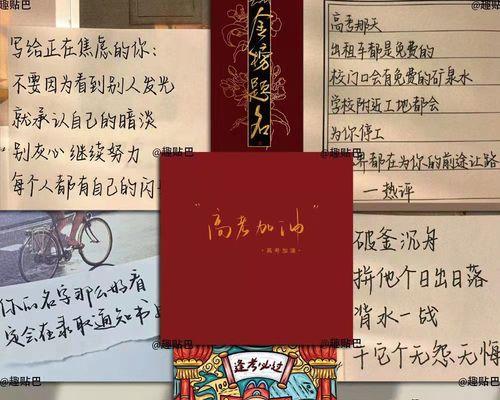 @趣贴巴
写给正在焦虑的你:
不要因为看到别人发光
就承认自己的暗淡
别灰心继续努力
每个人都有自己的闪
@趣贴巴
金榜题名
@趣贴巴
高考那天
出租车都是免费的
校门口会有免费的矿泉水
学校附近工地都会
为你停工
都在为你的前途让路
一热评
@趣贴巴
“高考加油”
·高考加油·
你的名字那么好看
定会在录取通知书
@趣贴巴
破釜沉舟
拼他个日出日落
背水一战
干它个无怨无悔
@趣贴巴
逢考必过
@趣贴巴